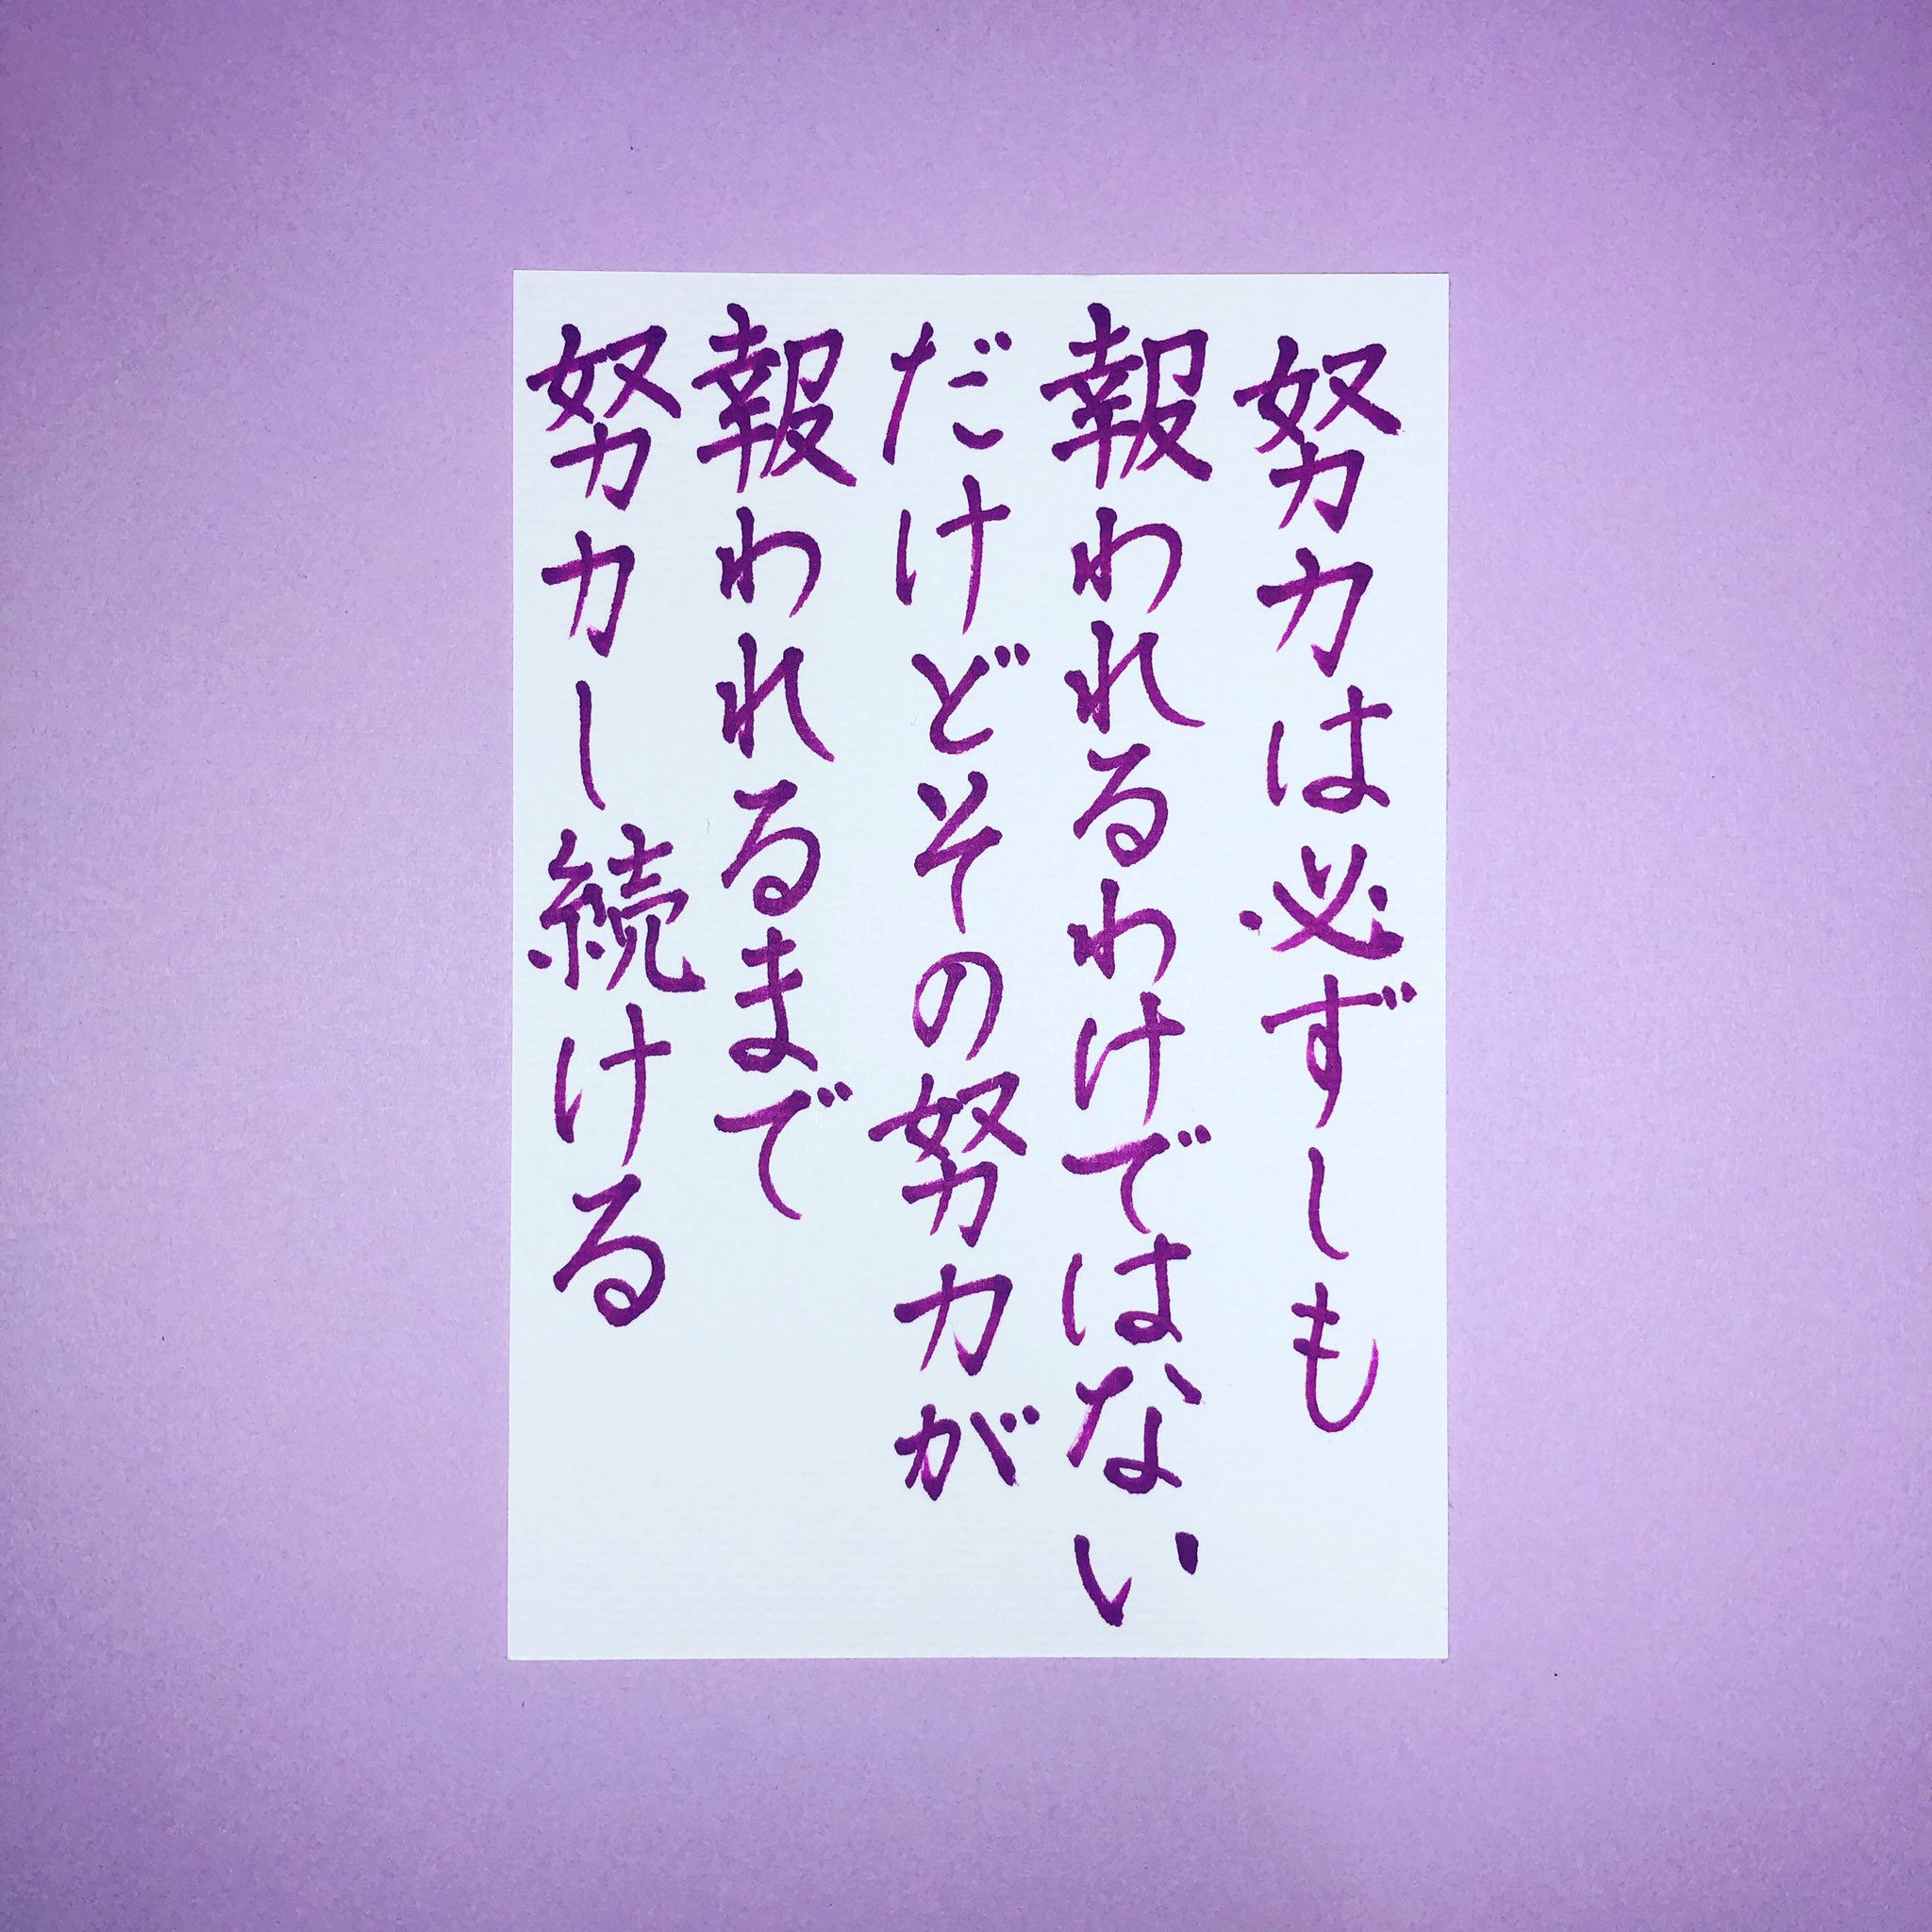 努力は必ずしも
報われるわけではない
だけどその努力が
報われるまで
努力し続ける